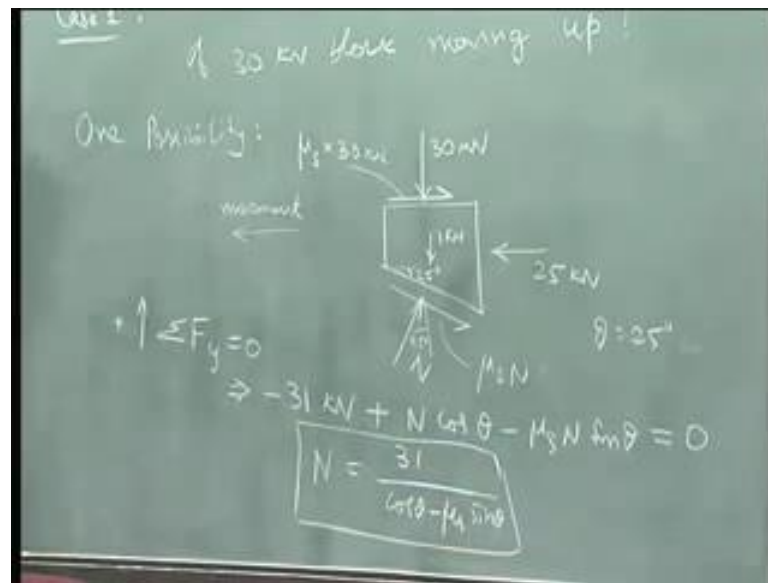 Case 1 :
30 KN block moving up !
One Possibility :
μs × 30 KN
30 KN
movement
1 KN
25°
25 KN
+ ↑ ΣFy = 0
θ = 25°
N
μsN
⇒ -31 KN + N cos θ - μs N sin θ = 0
N = 31 / cosθ - μs sinθ